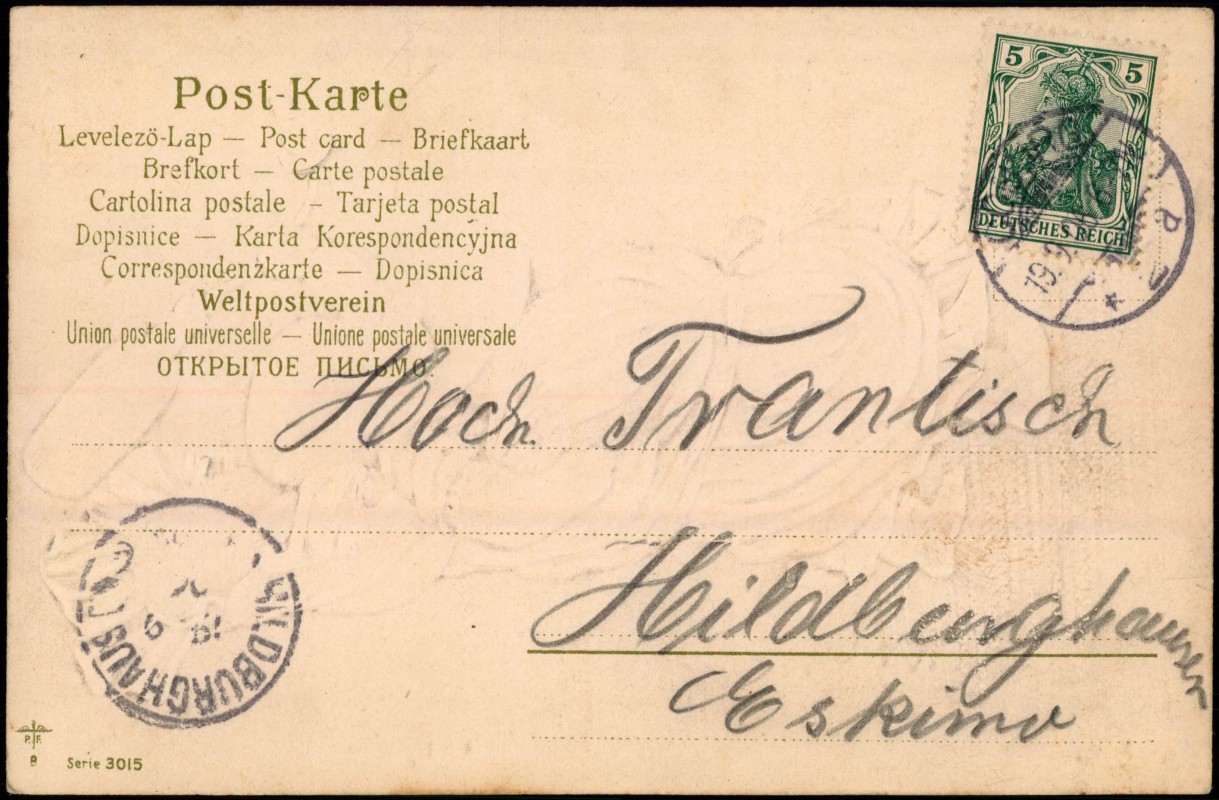 Post-Karte
Levelező-Lap — Post card — Briefkaart
Brefkort — Carte postale
Cartolina postale – Tarjeta postal
Dopisnice — Karta Korespondencyjna
Correspondenzkarte — Dopisnica
Weltpostverein
Union postale universelle — Unione postale universale
ОТКРЫТОЕ ПИСЬМО
5 5
DEUTSCHES REICH
19.2
Hoch Frantisch
Hildburghausen
Eskimo
HILDBURGHAUS
P. F.
8
Serie 3015